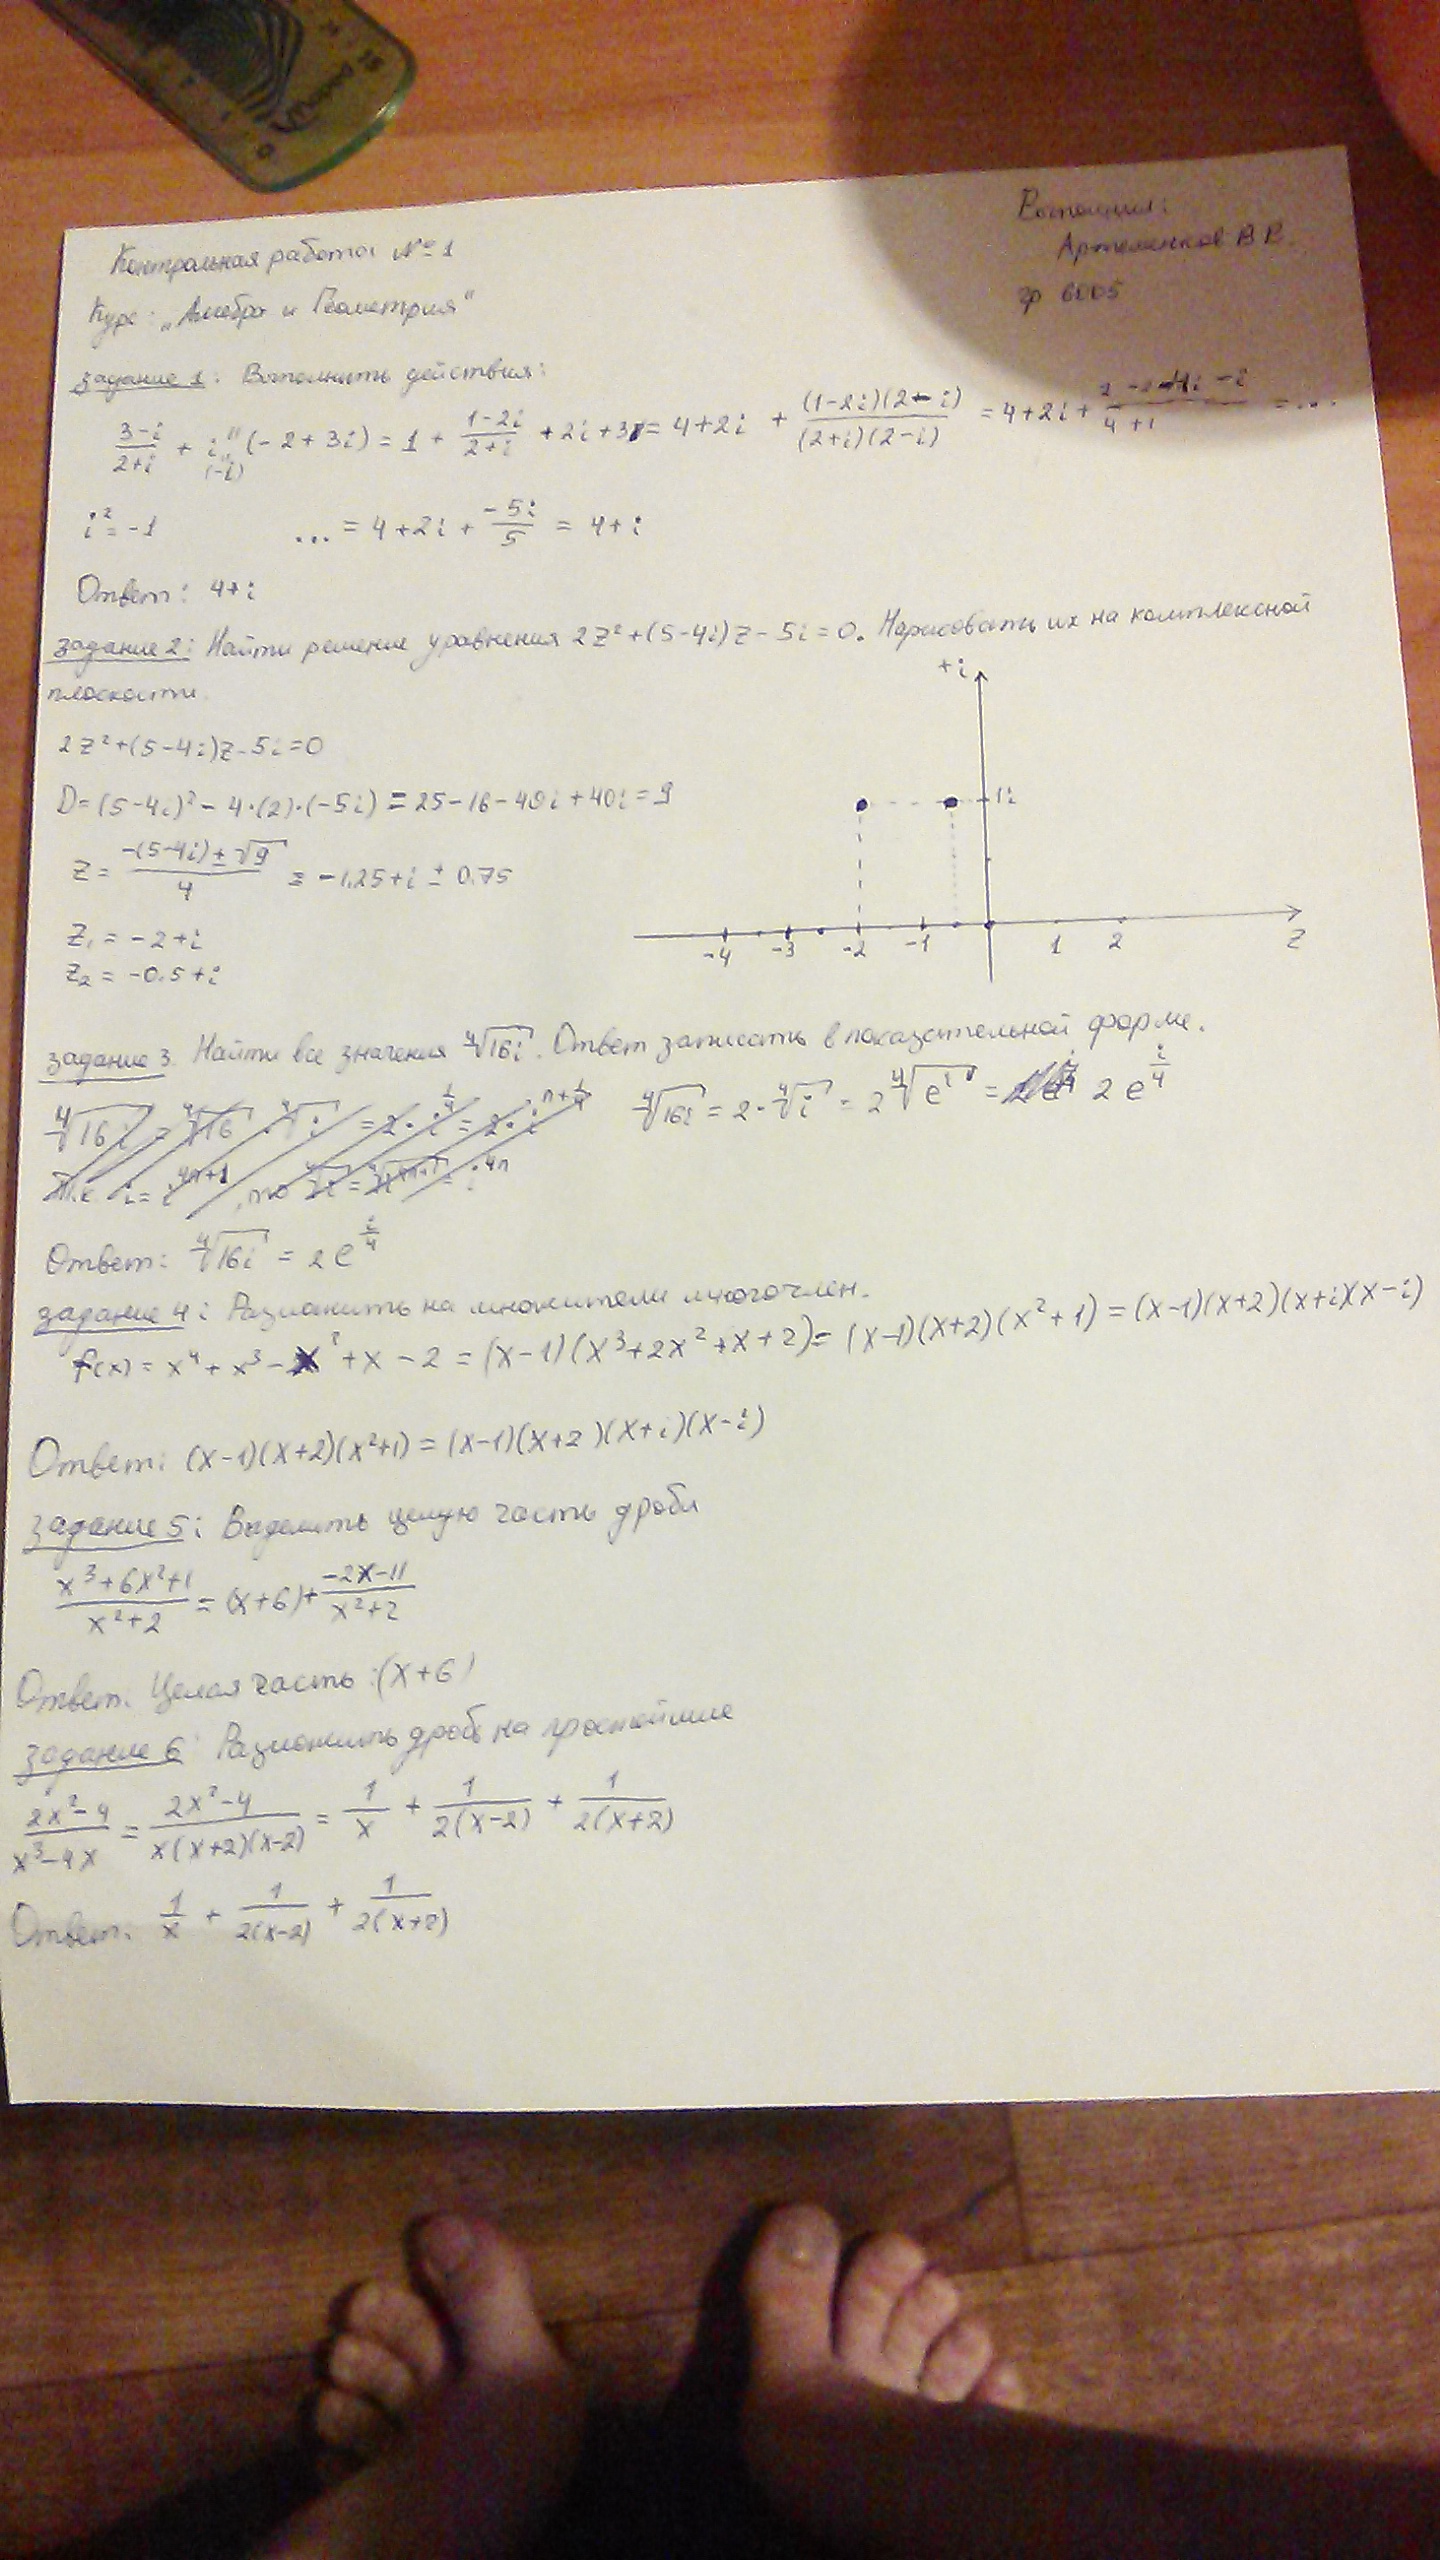 Выполнил:
Контрольная работа № 1
Артеменков В В.
Курс: „Алгебра и Геометрия“
гр 6005
Задание 1: Выполнить действия:
(3-i)/(2+i) + i¹¹(-2+3i) = 1 + (1-2i)/(2+i) + 2i + 3 = 4+2i + ((1-2i)(2-i))/((2+i)(2-i)) = 4+2i + (2-2-4i-i)/(4+1) = ...
(-i)
i² = -1 ... = 4+2i + (-5i)/5 = 4+i
Ответ: 4+i
Задание 2: Найти решение уравнения 2z²+(5-4i)z-5i=0. Нарисовать их на комплексной
плоскости.
+i
2z²+(5-4i)z-5i=0
D=(5-4i)²-4·(2)·(-5i) = 25-16-40i+40i=9
1i
z = (-(5-4i)±√9)/4 = -1.25+i ± 0.75
z₁ = -2+i
-4 -3 -2 -1 1 2 z
z₂ = -0.5+i
Задание 3. Найти все значения ⁴√16i. Ответ записать в показательной форме.
⁴√16i = 2·⁴√i = 2 ⁴√e^i = 2e^(i/4)
Ответ: ⁴√16i = 2e^(i/4)
Задание 4: Разложить на множители многочлен.
f(x) = x⁴+x³-x²+x-2 = (x-1)(x³+2x²+x+2) = (x-1)(x+2)(x²+1) = (x-1)(x+2)(x+i)(x-i)
Ответ: (x-1)(x+2)(x²+1) = (x-1)(x+2)(x+i)(x-i)
Задание 5: Выделить целую часть дроби
(x³+6x²+1)/(x²+2) = (x+6)+(-2x-11)/(x²+2)
Ответ: Целая часть: (x+6)
Задание 6: Разложить дробь на простейшие
(2x²-4)/(x³-4x) = (2x²-4)/(x(x+2)(x-2)) = 1/x + 1/(2(x-2)) + 1/(2(x+2))
Ответ: 1/x + 1/(2(x-2)) + 1/(2(x+2))